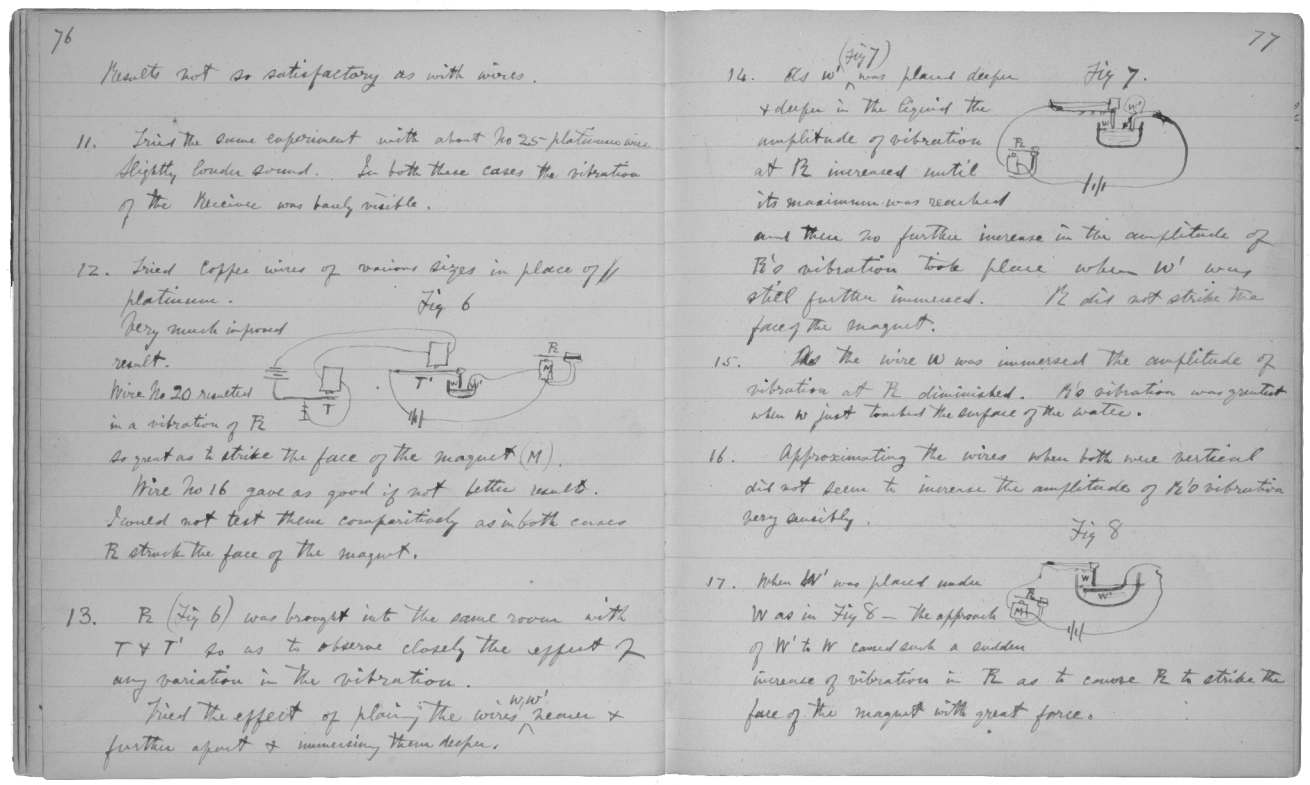 76
Results not so satisfactory as with wires.
11. Tried the same experiment with about No 25 platinum wire
Slightly louder sound. In both these cases the vibration
of the Receiver was barely visible.
12. Tried copper wires of various sizes in place of
platinum.
Fig 6
Very much improved
result.
Wire No 20 resulted
in a vibration of R
T
T'
W
W'
M
R
so great as to strike the face of the magnet (M).
Wire No 16 gave as good if not better results.
I could not test them comparitively as in both cases
R struck the face of the magnet.
13. R (Fig 6) was brought into the same room with
T & T' so as to observe closely the effect of
any variation in the vibration.
Tried the effect of placing the wires W, W' nearer &
further apart & immersing them deeper.
77
14. As W' (Fig 7) was placed deeper
Fig 7.
& deeper in the liquid the
amplitude of vibration
at R increased until
its maximum was reached
W
W'
R
and then no further increase in the amplitude of
R's vibration took place when W' was
still further immersed. R did not strike the
face of the magnet.
15. As the wire W was immersed the amplitude of
vibration at R diminished. R's vibration was greatest
when W just touched the surface of the water.
16. Approximating the wires when both were vertical
did not seem to increase the amplitude of R's vibration
very sensibly.
Fig 8
17. When W' was placed under
W as in Fig 8 — the approach
of W' to W caused such a sudden
W
W'
R
M
increase of vibration in R as to cause R to strike the
face of the magnet with great force.